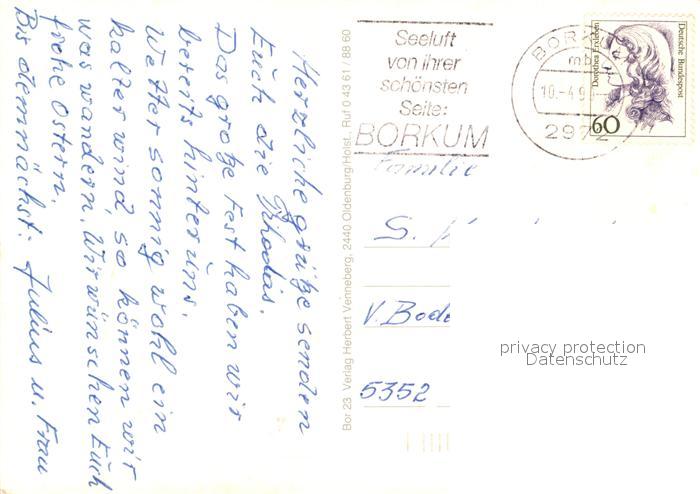 Herzliche grüße senden
Euch die Rhodas.
Das große Fest haben wir
bereits hinter uns.
Wetter sonnig wohl ein
kalter wind, so können wir
was wandern. Wir wünschen Euch
frohe Ostern.
Bis demnächst: Julius u. Frau
Bor 23 Verlag Herbert Venneberg, 2440 Oldenburg/Holst., Ruf 0 43 61 / 88 60
Seeluft
von ihrer
schönsten
Seite:
BORKUM
BORKUM
mb
10.-4.9
2972
Deutsche Bundespost
Dorothea Erxleben
60
Familie
S.
V. Bode
5352
privacy protection
Datenschutz